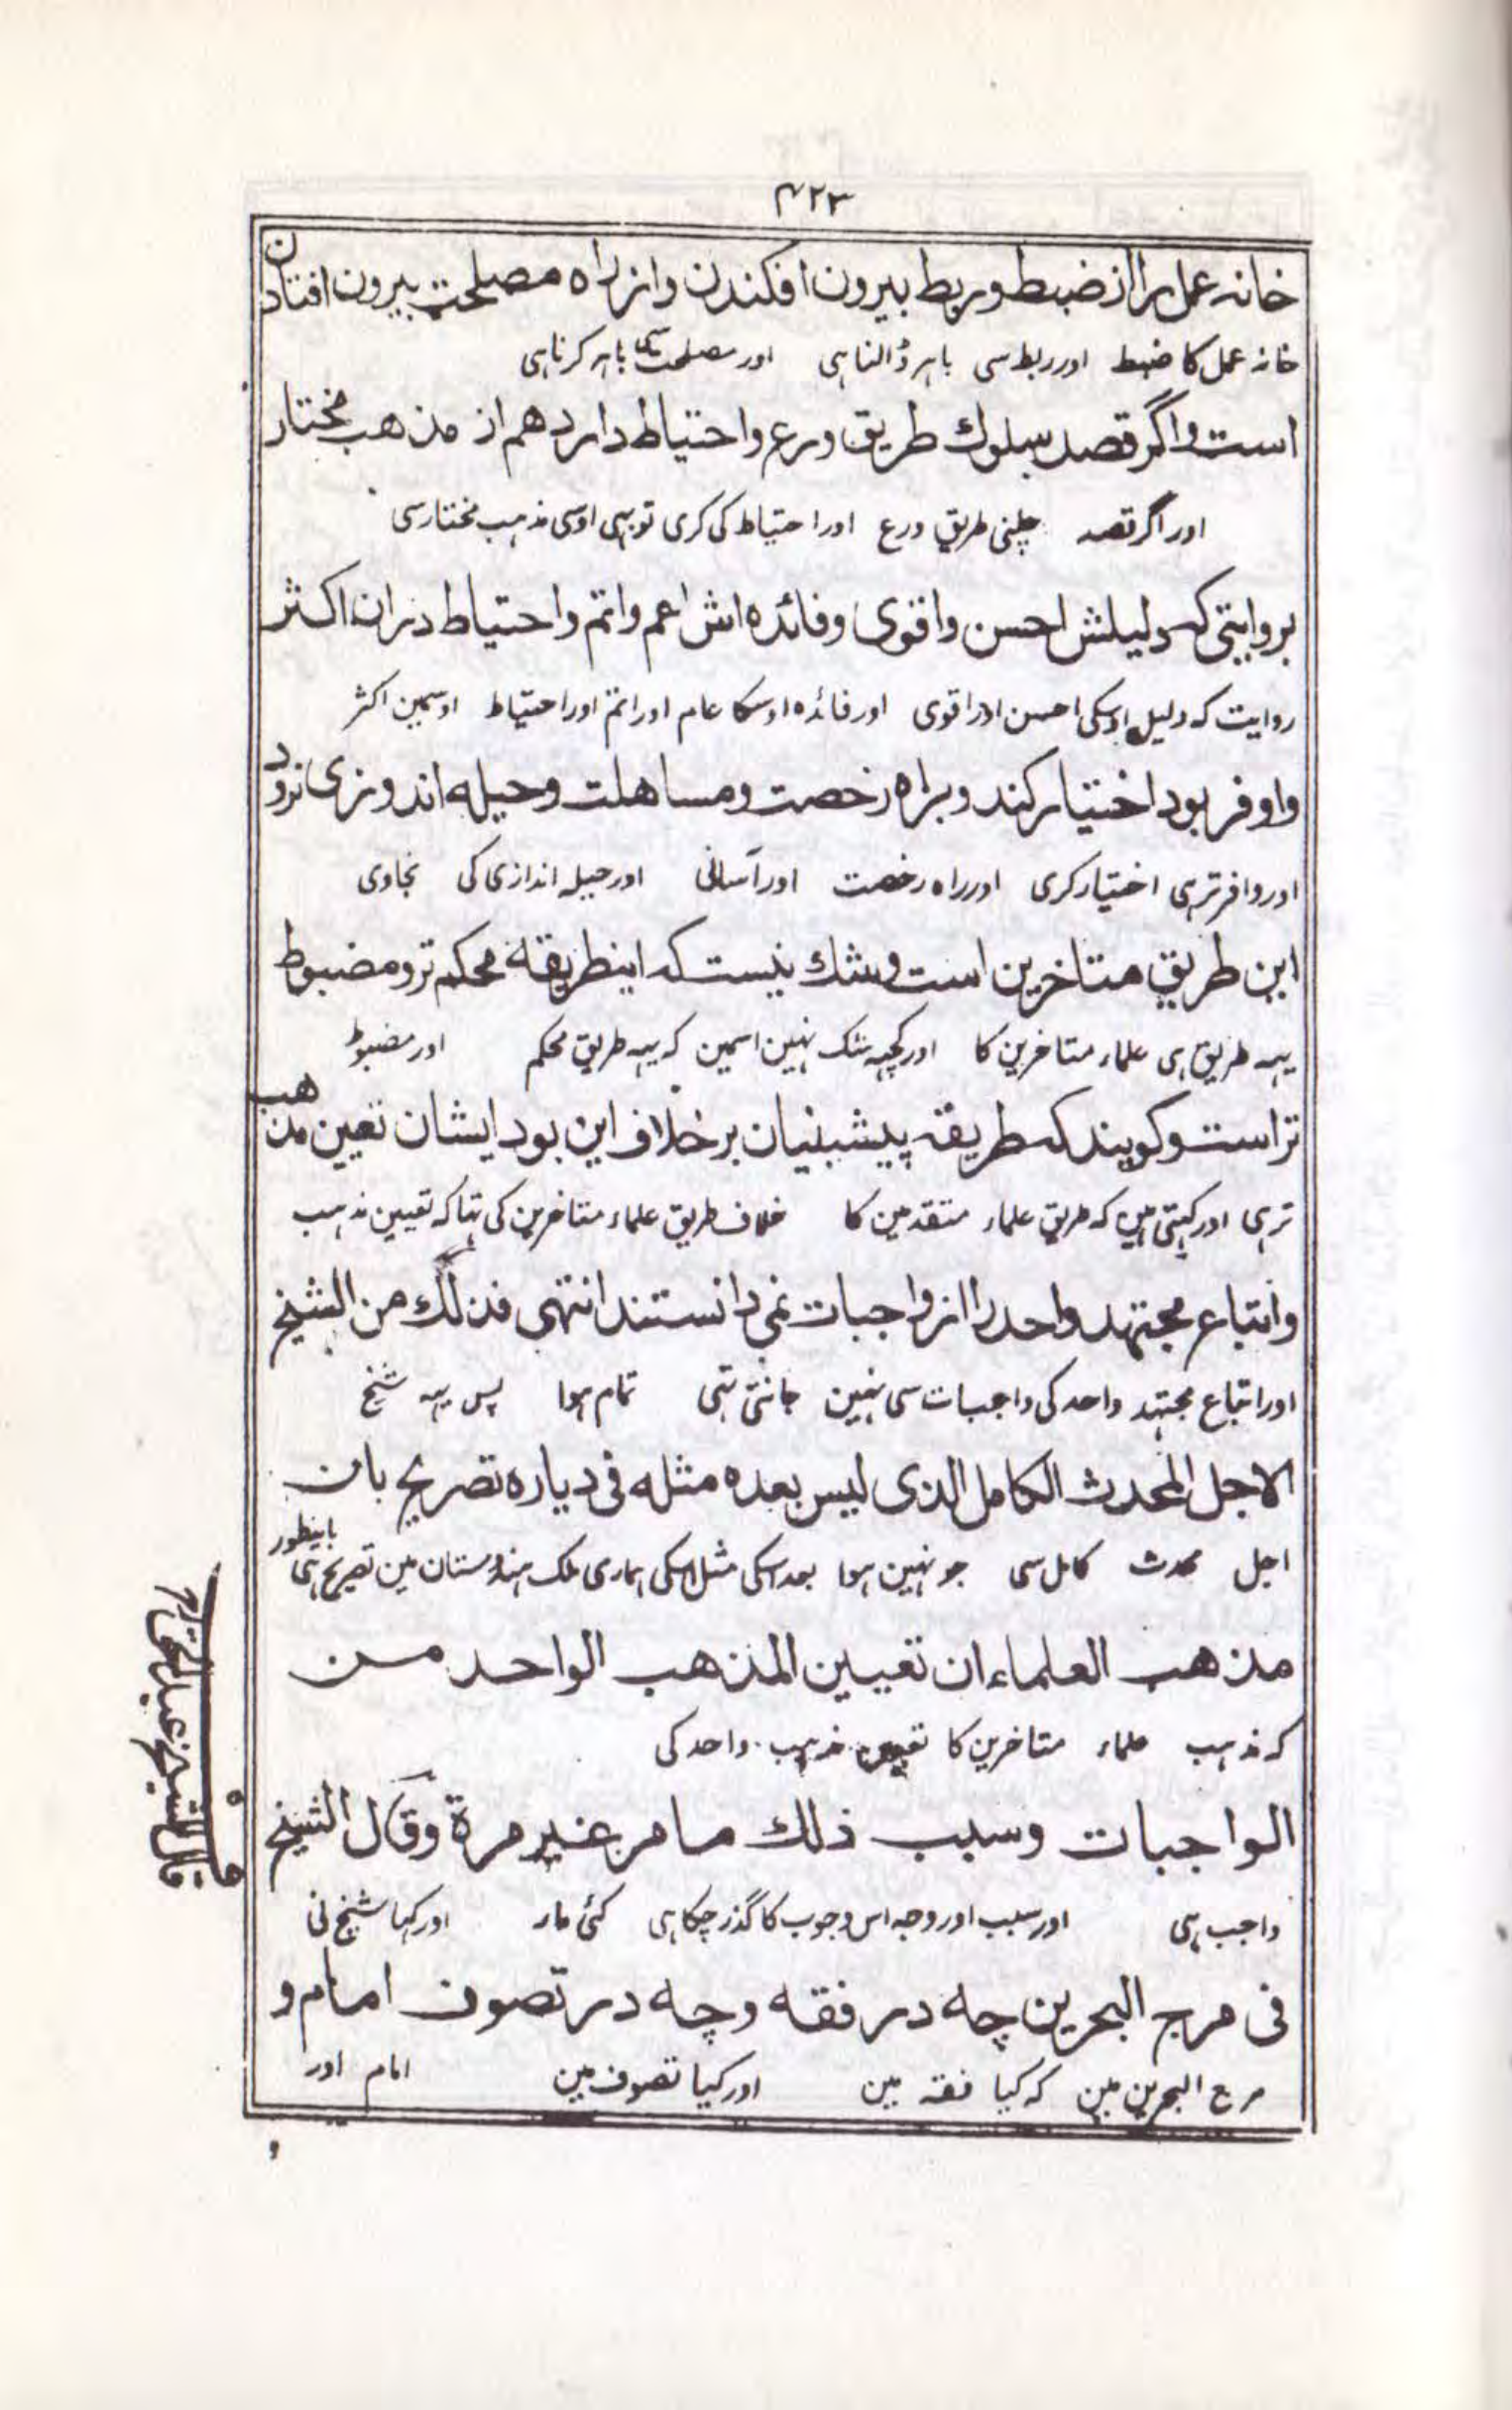 ۴۲۳
خانہ عمل را از ضبط و ربط بیرون افکندن و از راه مصلحت بیرون افتادن
خانہ عمل کا ضبط اور ربط سی باہر ڈالنا ہی اور مصلحت سی باہر کرنا ہی
است و اگر قصد سلوك طریق ورع و احتیاط دارد هم از مذهب مختار
اور اگر قصد چلنی طریق ورع اور احتیاط کی کری تو بہی اوسی مذہب مختار سی
بروایتی که دلیلش احسن و اقوی و فائده اش اعم و اتم و احتیاط دران اکثر
روایت کہ دلیل اوسکی احسن اور اقوی اور فائدہ اوسکا عام اور اتم اور احتیاط اوسمین اکثر
و اوفر بود اختیار کند و براه رخصت و مساهلت و حیله اندوزی نرود
اور وافر تر ہی اختیار کری اور راہ رخصت اور آسانی اور حیلہ اندازی کی نجاوی
این طریق متاخرین است و شك نیست که اینطریقه محکم تر و مضبوط
یہہ طریق ہی علماء متاخرین کا اور کچہہ شک نہین اسمین کہ یہہ طریق محکم اور مضبوط
تر است و کویند که طریقه پیشینیان بر خلاف این بود ایشان تعین مذهب
تر ہی اور کہتی ہین کہ طریق علماء متقدمین کا خلاف طریق علماء متاخرین کی تہا کہ تعیین مذہب
و اتباع مجتهد واحد را از واجبات نمی دانستند انتهی فذلك من الشیخ
اور اتباع مجتہد واحد کی واجبات سی نہین جانتی تہی تمام ہوا پس یہہ شیخ
الاجل المحدث الکامل الذی لیس بعده مثله فی دیاره تصریح بان
اجل محدث کامل سی جو نہین ہوا بعد اسکی مثل اسکی ہماری ملک ہندوستان مین تصریح ہی باینطور
مذهب العلماء ان تعیین المذهب الواحد من
کہ مذہب علماء متاخرین کا تعیین مذہب واحد کی
الواجبات وسبب ذلك ما مر غیر مرة وقال الشیخ
واجب ہی اور سبب اور وجہ اس وجوب کا گذر چکا ہی کئی بار اور کہا شیخ نی
فی مرج البحرین چه در فقه و چه در تصوف امام و
مرج البحرین مین کہ کیا فقہ مین اور کیا تصوف مین امام اور
قال الشیخ عبد الحق